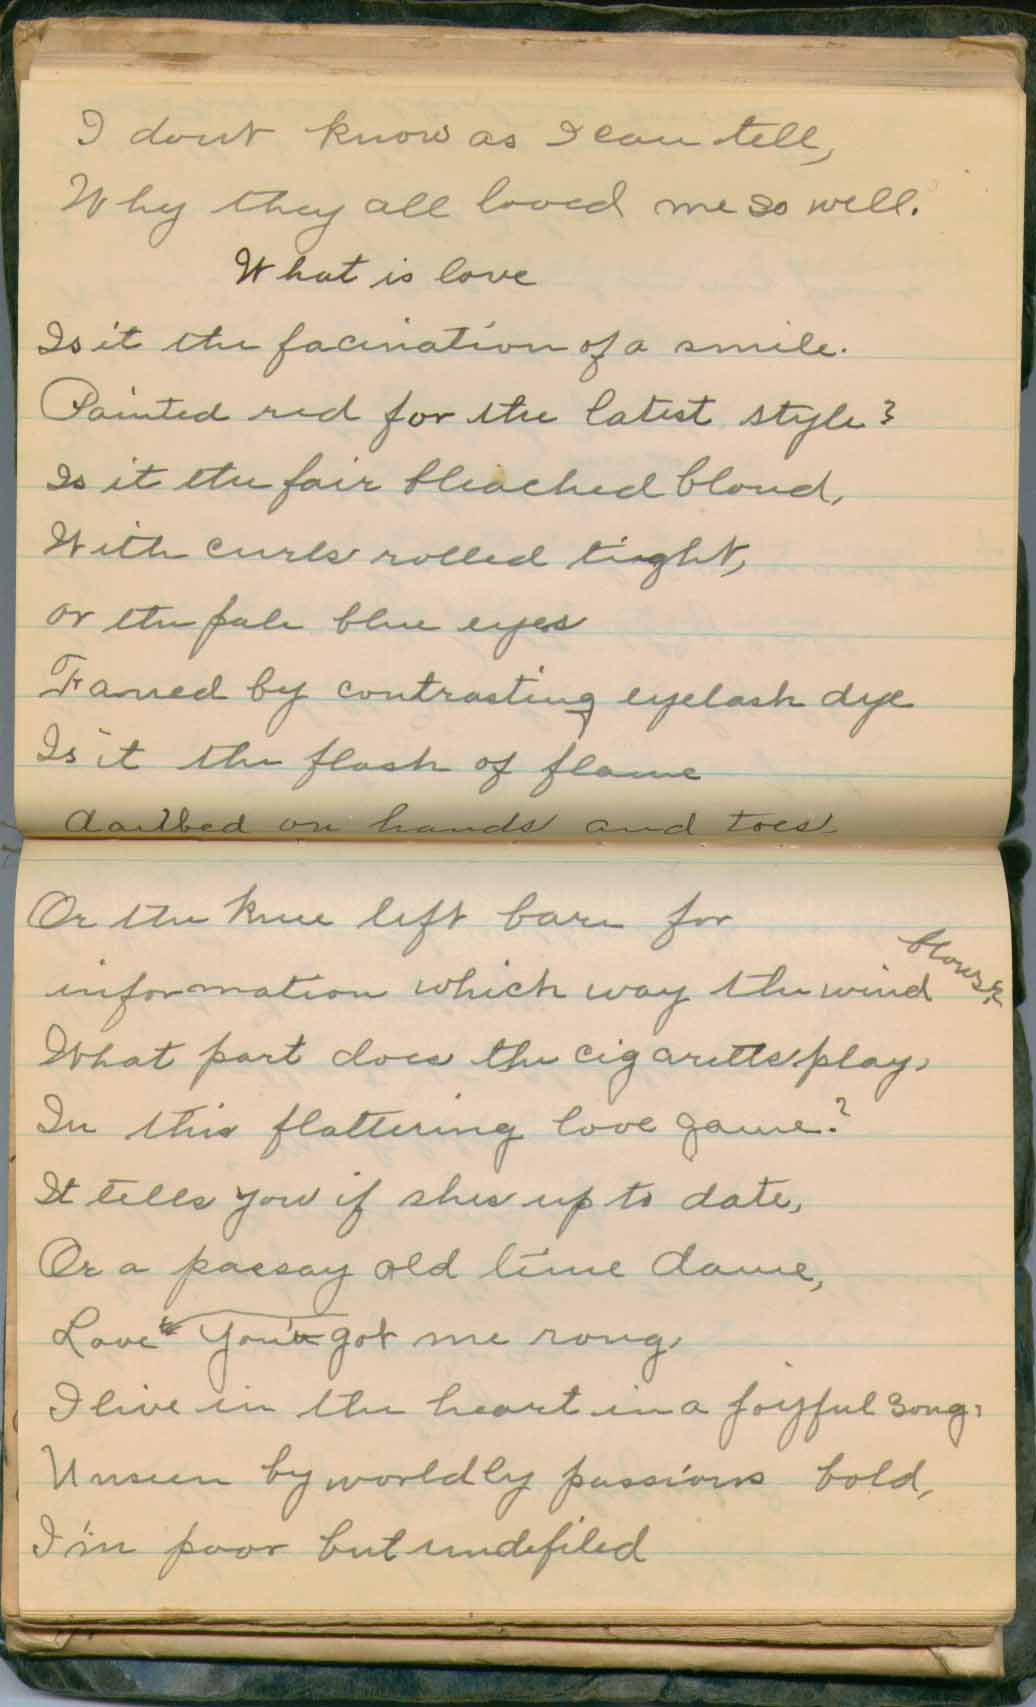 I don't know as I can tell,
Why they all loved me so well.
What is love
Is it the facination of a smile.
Painted red for the latest style?
Is it the fair bleached blond,
With curls rolled tight,
or the pale blue eyes
Framed by contrasting eyelash dye
Is it the flash of flame
daubed on hands and toes,
Or the knee left bare for
information which way the wind blows?
What part does the cigarette play,
In this flattering love game?
It tells you if shes up to date,
Or a passay old time dame,
Love you've got me rong,
I live in the heart in a joyful song,
Unseen by worldly passions bold,
I'm poor but undefiled